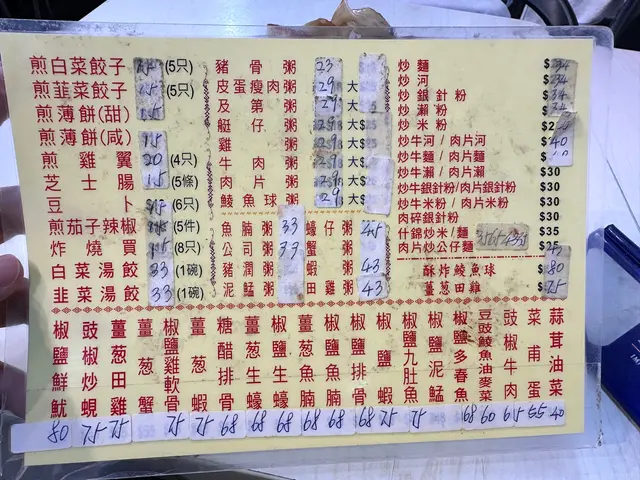 煎白菜餃子 (5只)
煎韮菜餃子 15 (5只)
煎薄餅(甜) 15
煎薄餅(咸) 15
煎雞翼 20 (4只)
芝士腸 15 (5條)
豆卜 (6只)
煎茄子辣椒 (5件)
炸燒買 (8只)
白菜湯餃 33 (1碗)
韮菜湯餃 33 (1碗)
豬骨粥 23
皮蛋瘦肉粥 29 大
及第粥 29 大
艇仔粥 29 大
雞粥 29 大
牛肉粥 29 大
肉片粥 29 大
鯪魚球粥 29 大
魚腩粥 33
公司粥 33
豬潤粥
泥鯭粥
蠔仔粥 45
蟹粥
蝦粥 43
田雞粥 43
炒麵 $34
炒河 $34
炒銀針粉 $34
炒瀨粉 $34
炒米粉 $
炒牛河/肉片河 $40
炒牛麵/肉片麵 $
炒牛瀨/肉片瀨 $30
炒牛銀針粉/肉片銀針粉 $30
炒牛米粉/肉片米粉 $30
肉碎銀針粉 $30
什錦炒米/麵 $35
肉片炒公仔麵 $25
酥炸鯪魚球 $80
薑葱田雞 $75
椒鹽鮮魷 80
豉椒炒蜆 75
薑葱田雞 75
薑葱蟹
椒鹽雞軟骨 75
薑葱蝦 75
糖醋排骨 68
椒鹽生蠔 68
薑葱生蠔 68
椒鹽魚腩 68
薑葱魚腩 68
椒鹽排骨 68
椒鹽蝦 75
椒鹽九肚魚 75
椒鹽泥鯭
椒鹽多春魚 68
豆豉鯪魚油麥菜 60
豉椒牛肉 65
菜甫蛋 55
蒜茸油菜 40